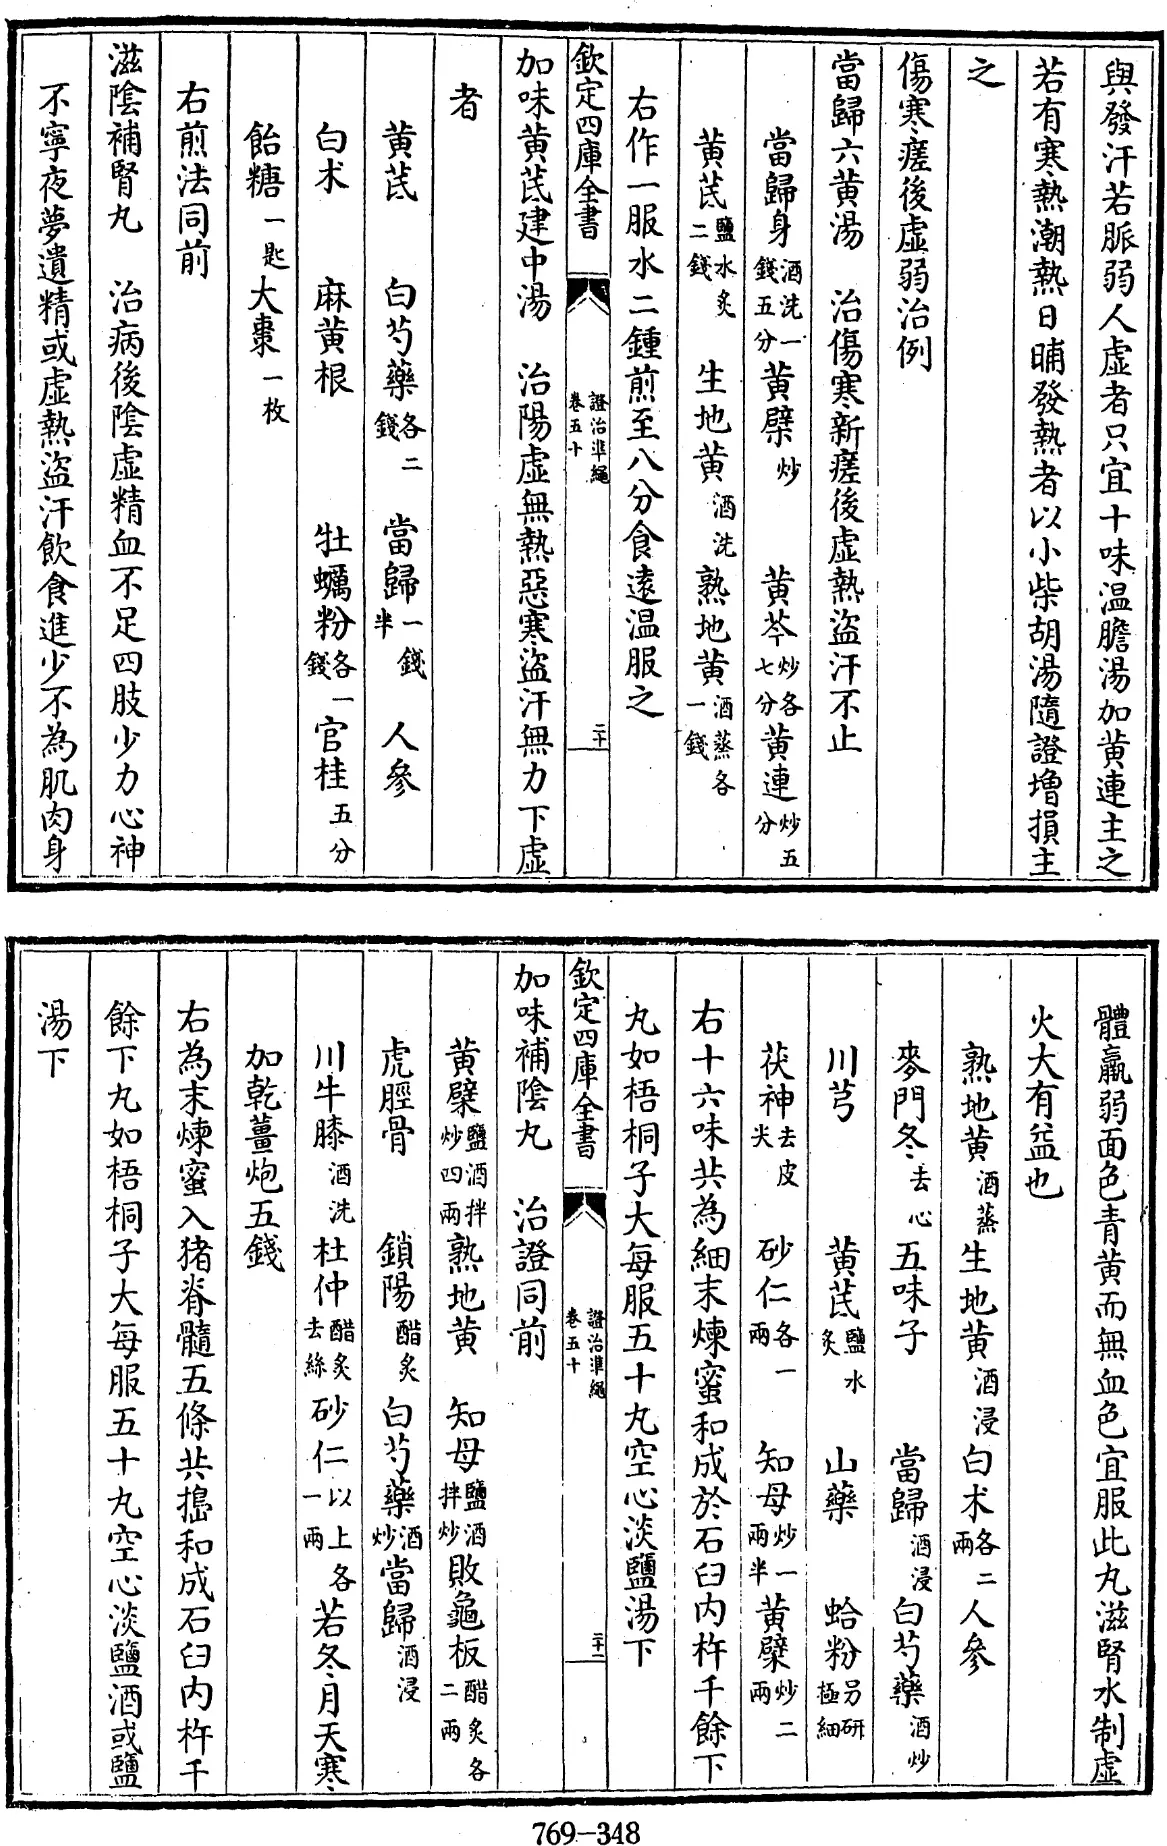 與發汗若脈弱人虚者只宜十味温膽湯加黄連主之
若有寒熱潮熱日晡發熱者以小柴胡湯隨證増損主
之
傷寒瘥後虚弱治例
當歸六黄湯　治傷寒新瘥後虚熱盜汗不止
當歸身酒洗一錢五分　黄檗炒　黄芩炒各七分　黄連炒五分
黄芪鹽水炙二錢　生地黄酒洗　熟地黄酒蒸各一錢
右作一服水二鍾煎至八分食遠温服之
欽定四庫全書　證治準繩卷五十　二十
加味黄芪建中湯　治陽虚無熱惡寒盜汗無力下虚
者
黄芪　白芍藥各二錢　當歸一錢半　人參
白术　麻黄根　牡蠣粉各一錢　官桂五分
飴糖一匙　大棗一枚
右煎法同前
滋陰補腎丸　治病後陰虚精血不足四肢少力心神
不寧夜夢遺精或虚熱盜汗飲食進少不為肌肉身
體羸弱面色青黄而無血色宜服此丸滋腎水制虚
火大有益也
熟地黄酒蒸　生地黄酒浸　白术各二兩　人參
麥門冬去心　五味子　當歸酒浸　白芍藥酒炒
川芎　黄芪鹽水炙　山藥　蛤粉另研極細
茯神去皮尖　砂仁各一兩　知母炒一兩半　黄檗炒二兩
右十六味共為細末煉蜜和成於石臼内杵千餘下
丸如梧桐子大每服五十丸空心淡鹽湯下
欽定四庫全書　證治準繩卷五十　二十一
加味補陰丸　治證同前
黄檗鹽酒拌炒四兩　熟地黄　知母鹽酒拌炒　敗龜板醋炙各二兩
虎脛骨　鎖陽醋炙　白芍藥酒炒　當歸酒浸
川牛膝酒洗　杜仲醋炙去絲　砂仁以上各一兩　若冬月天寒
加乾薑炮五錢
右為末煉蜜入猪脊髓五條共搗和成石臼内杵千
餘下丸如梧桐子大每服五十丸空心淡鹽酒或鹽
湯下
769-348